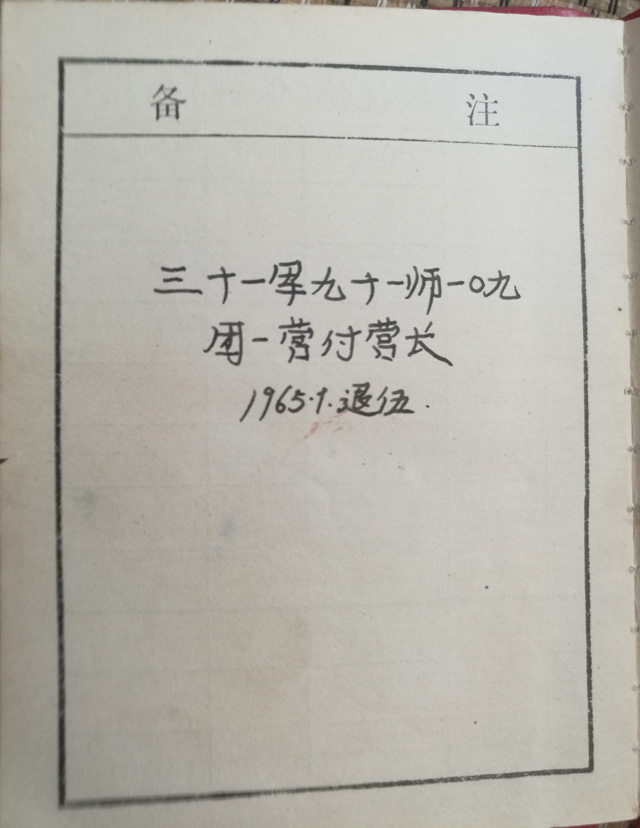 备 注
三十一军九十一师一〇九
团一营付营长
1965.9.退伍.